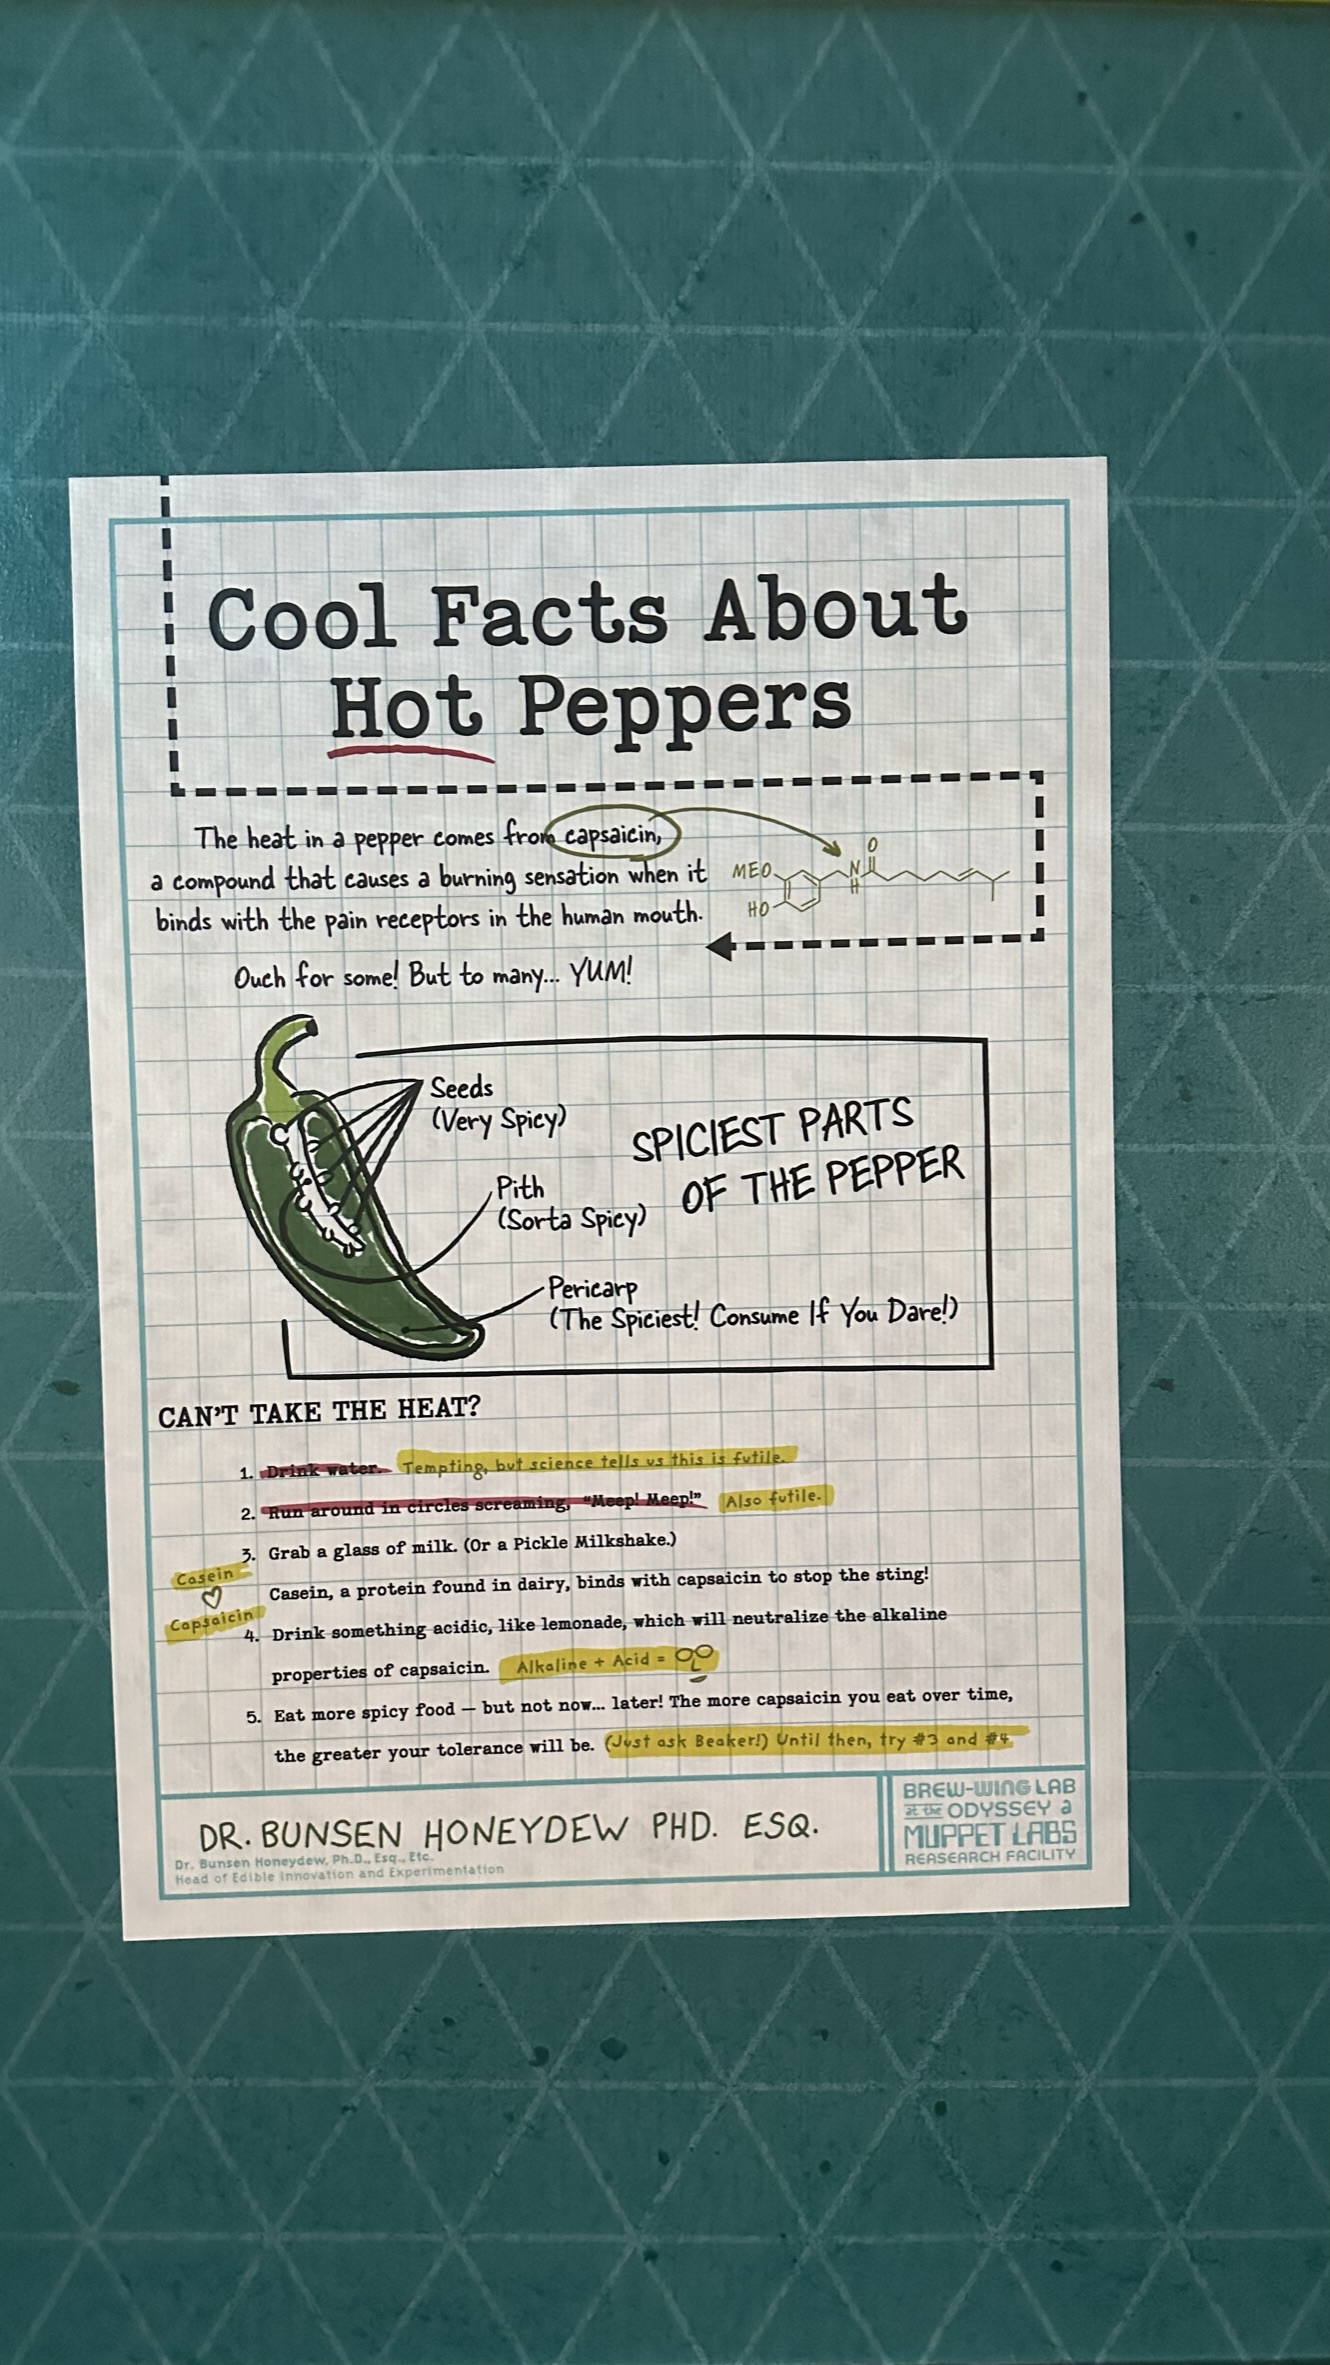 Cool Facts About
Hot Peppers
The heat in a pepper comes from capsaicin,
a compound that causes a burning sensation when it
binds with the pain receptors in the human mouth.
Ouch for some! But to many... YUM!
MEO
HO
N
H
O
Seeds
(Very Spicy)
SPICIEST PARTS
OF THE PEPPER
Pith
(Sorta Spicy)
Pericarp
(The Spiciest! Consume If You Dare!)
CAN'T TAKE THE HEAT?
1. Drink water. Tempting, but science tells us this is futile.
2. Run around in circles screaming, "Meep! Meep!" Also futile.
3. Grab a glass of milk. (Or a Pickle Milkshake.)
Casein, a protein found in dairy, binds with capsaicin to stop the sting!
Casein
Capsaicin
4. Drink something acidic, like lemonade, which will neutralize the alkaline
properties of capsaicin. Alkaline + Acid =
5. Eat more spicy food — but not now... later! The more capsaicin you eat over time,
the greater your tolerance will be. (Just ask Beaker!) Until then, try #3 and #4.
DR. BUNSEN HONEYDEW PHD. ESQ.
Dr. Bunsen Honeydew, Ph.D., Esq., Etc.
Head of Edible Innovation and Experimentation
BREW-WING LAB
at the ODYSSEY a
MUPPET LABS
REASEARCH FACILITY